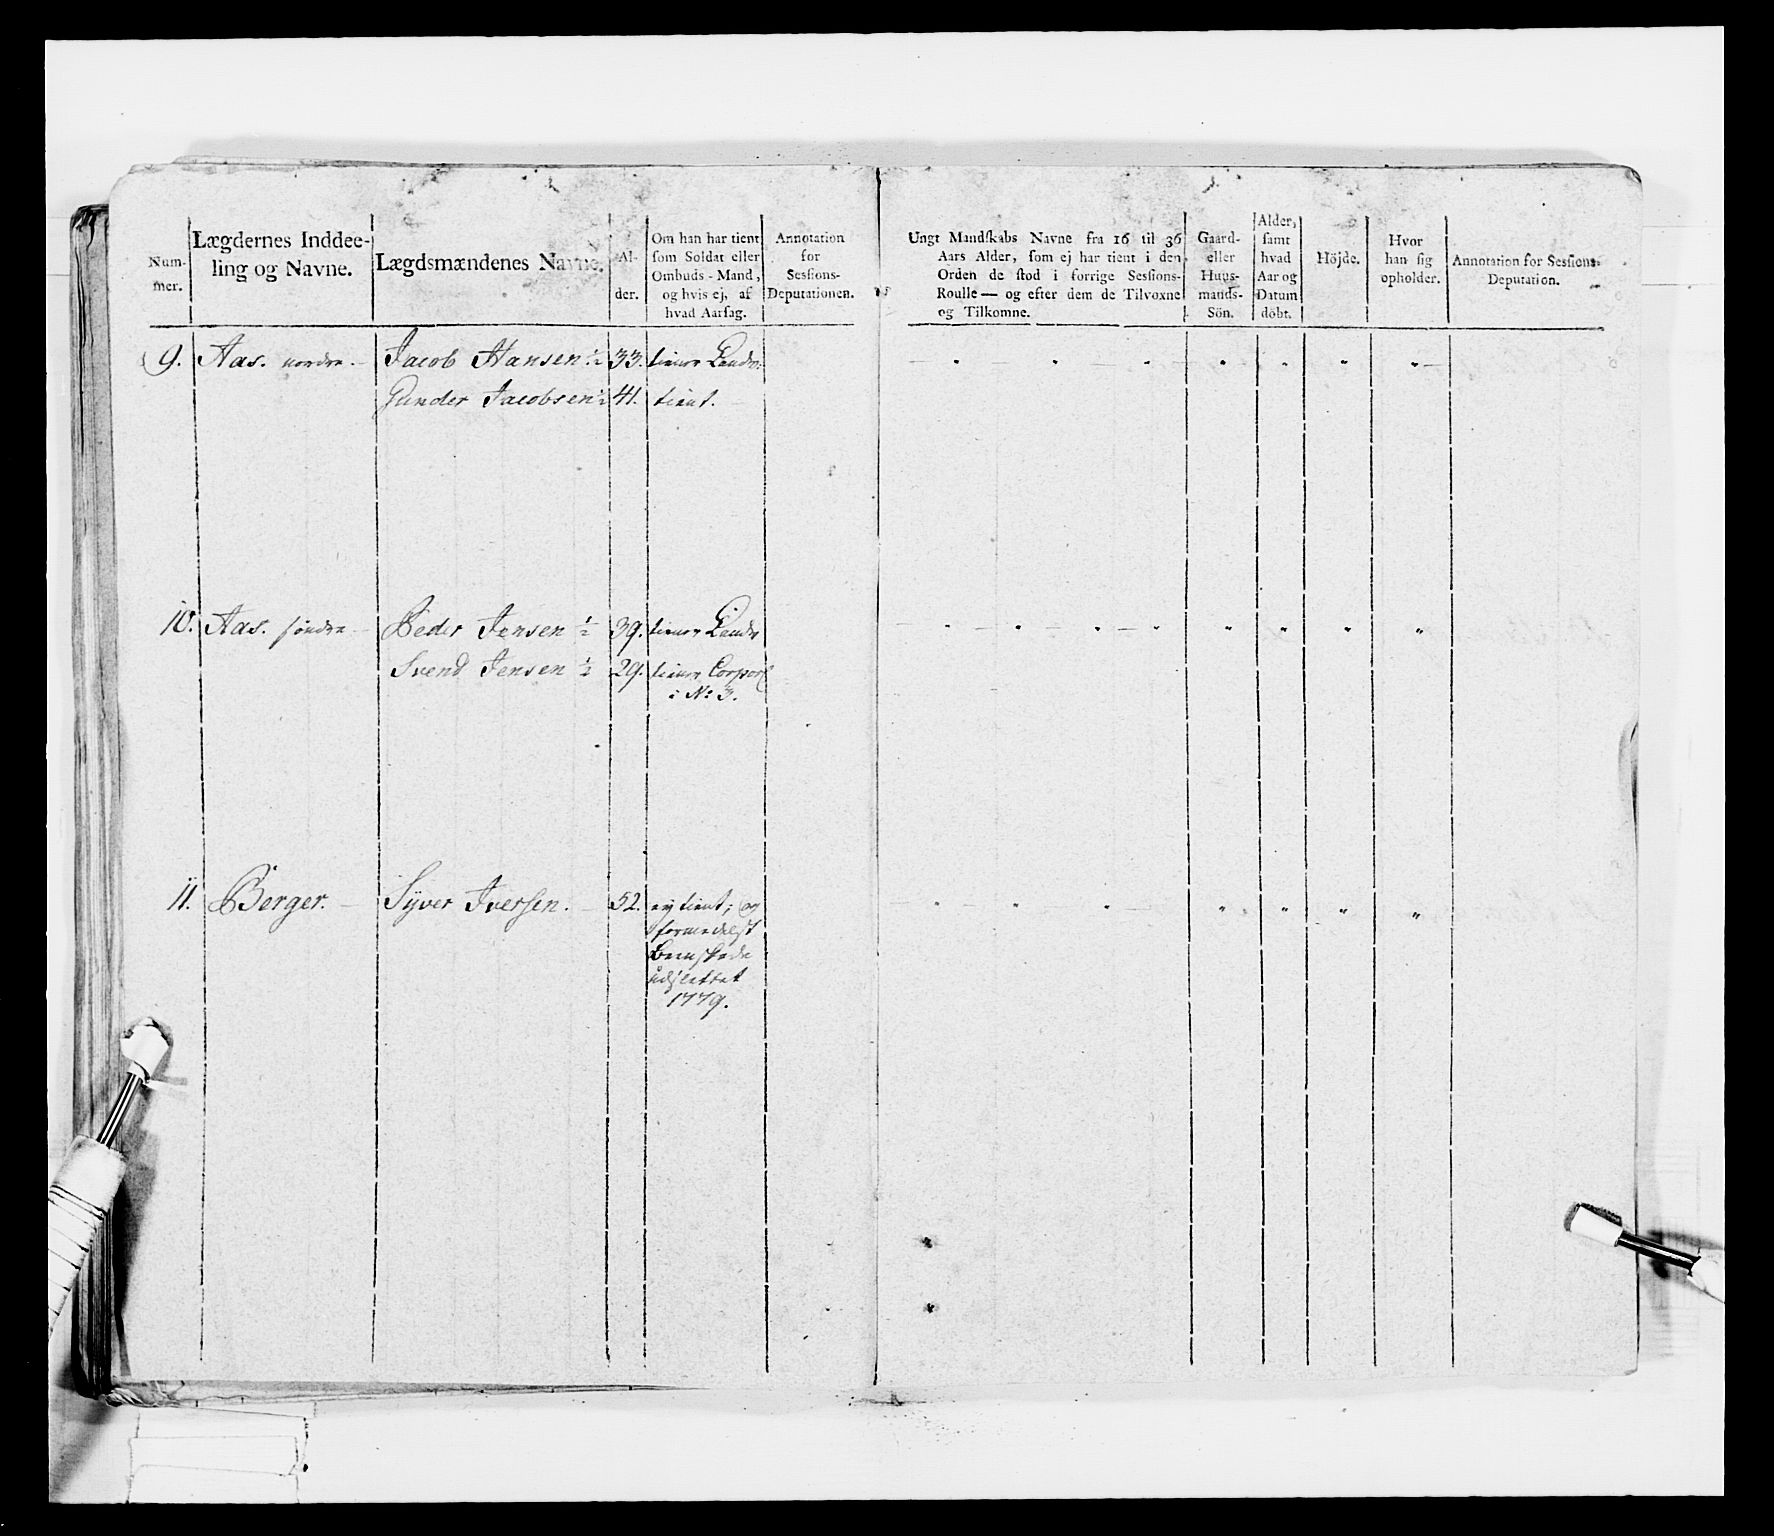 Num-
mer.
Lægdernes Inddee-
ling og Navne.
Lægdsmændenes Navne.
Al-
der.
Om han har tient
som Soldat eller
Ombuds-Mand,
og hvis ej, af
hvad Aarsag.
Annotation
for
Sessions-
Deputationen.
Ungt Mandskabs Navne fra 16 til 36
Aars Alder, som ej har tient i den
Orden de stod i forrige Sessions-
Roulle — og efter dem de Tilvoxne
og Tilkomne.
Gaard-
eller
Huus-
mands-
Sön.
Alder,
samt
hvad
Aar og
Datum
döbt.
Höjde.
Hvor
han sig
opholder.
Annotation for Sessions-
Deputation.
9. Aas. nordre. Jacob Hansen ½ 33. tiener Landv:
Gunder Jacobsen ½ 41. tient.
10. Aas. söndre Peder Jensen ½ 39. tiener Landv
Svend Jensen ½ 29. tiener Corporl
i No 3.
11. Berger. Syver Iversen. 52. ey tient; og
formedelst
Beenskade
udslettet
1779.